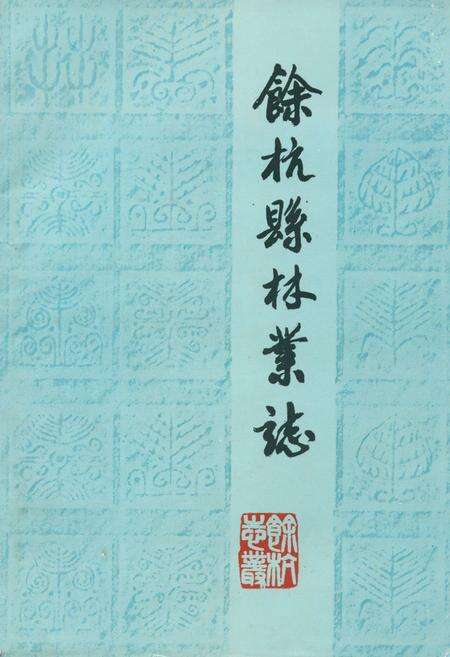 餘杭縣林業誌
餘杭
志叢